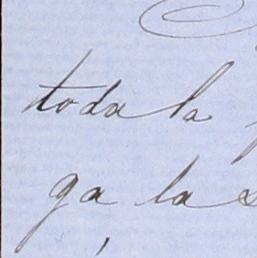 toda la
ga, la